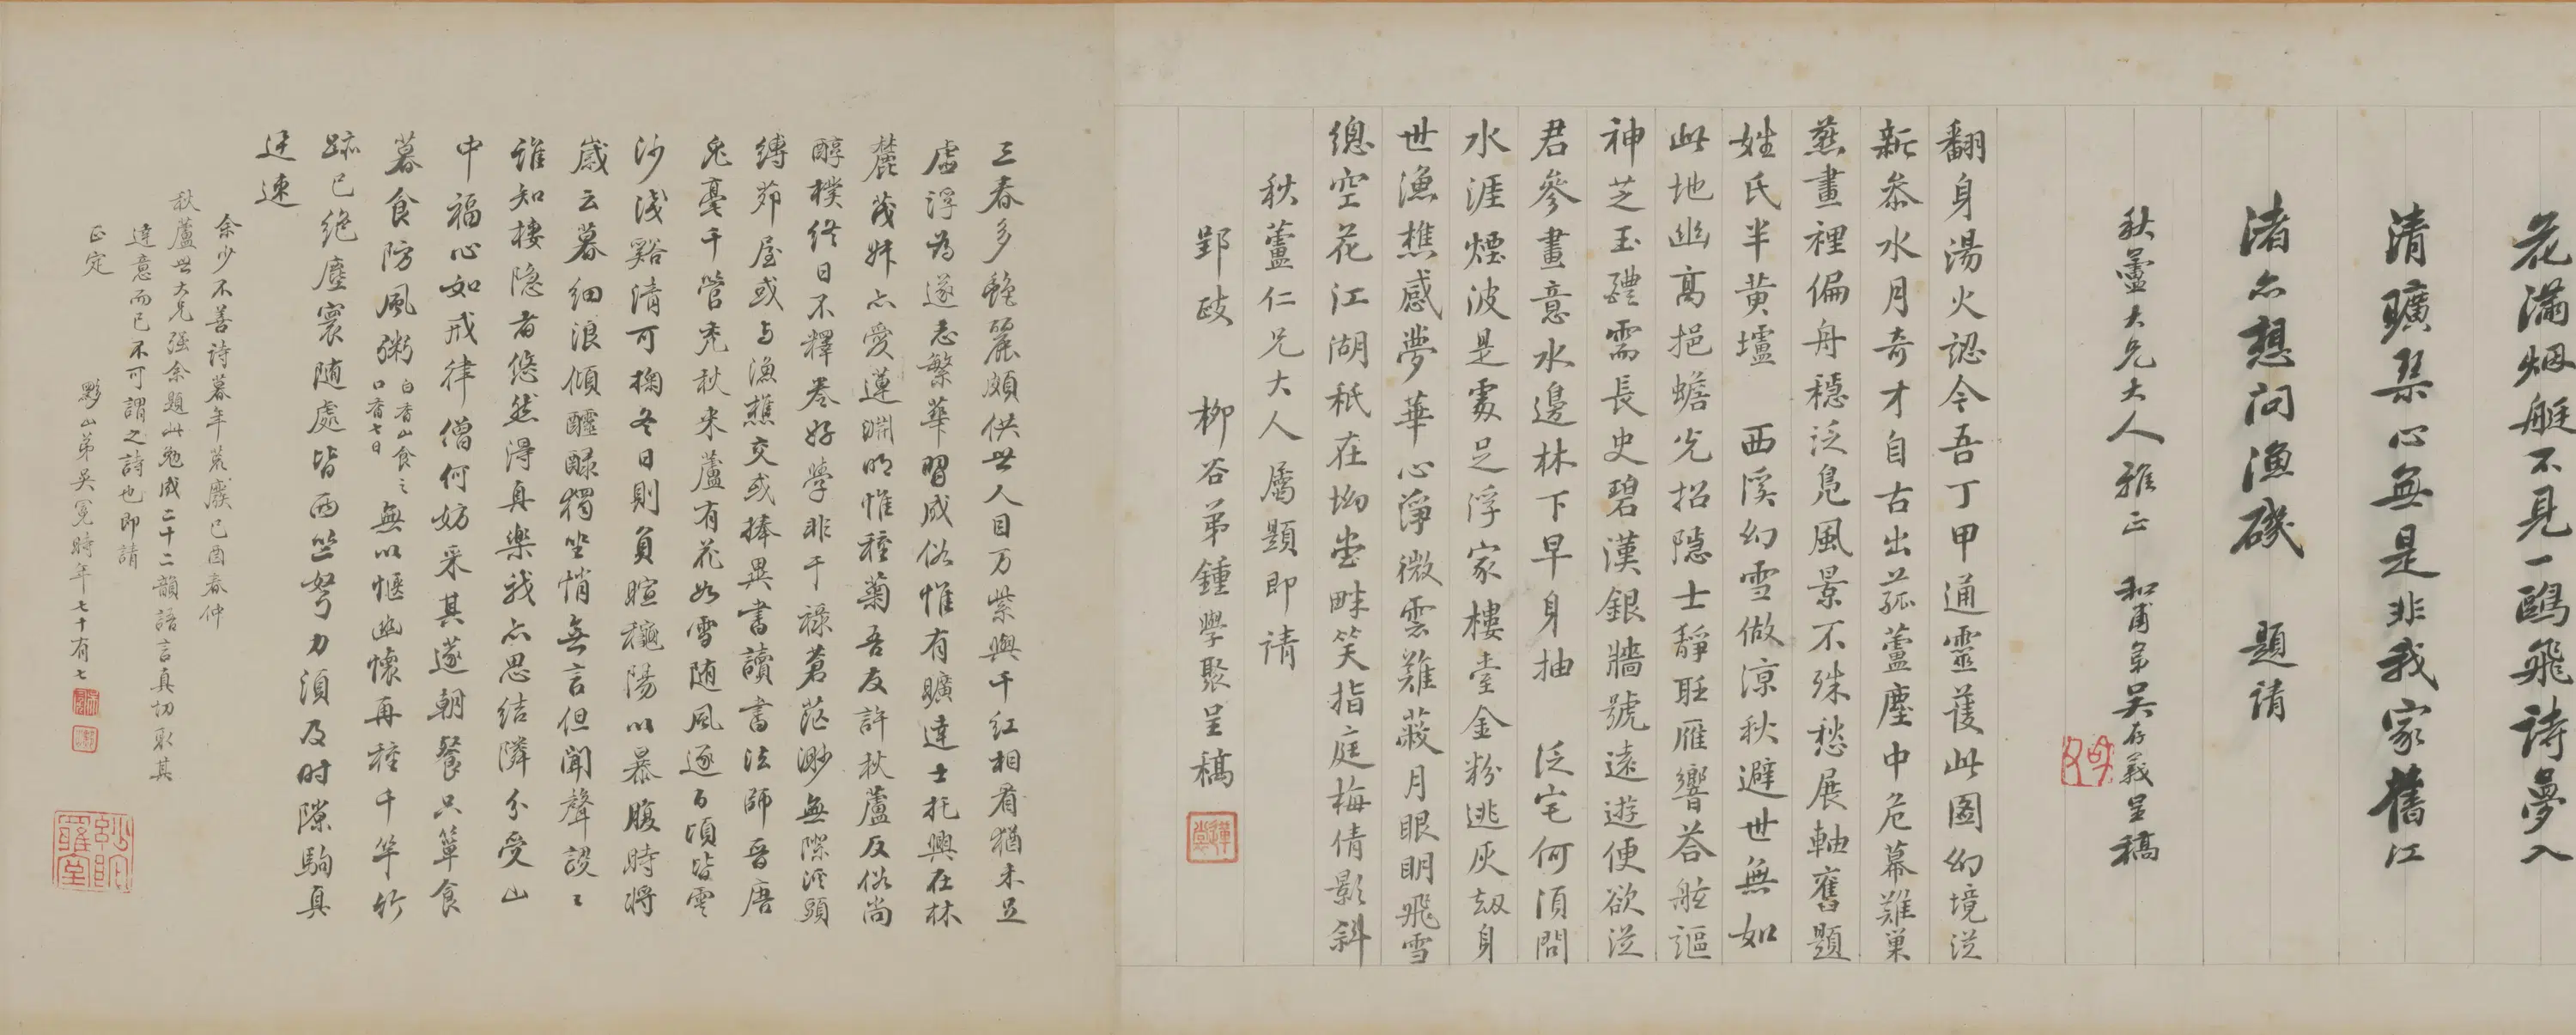 花滿烟艇不見一鷗飛詩夢入
清曠琴心無是非我家舊江
渚亦想問漁磯　題請
秋蘆大兄大人雅正　和甫弟吳存義呈稿
翻身湯火認今吾丁甲通靈護此圖幻境從
新參水月奇才自古出菰蘆塵中危幕難巢
燕畫裡偏舟穩泛鳧風景不殊愁展軸舊題
姓氏半黃壚　西溪幻雪做涼秋避世無如
此地幽高挹蟾光招隱士靜聽雁響荅舷謳
神芝玉醴需長史碧漢銀牆號遠遊便欲從
君參畫意水邊林下早身抽　泛宅何須問
水涯煙波是處足浮家樓臺金粉逃灰劫身
世漁樵感夢華心淨微雲難蔽月眼明飛雪
總空花江湖祇在坳堂畔笑指庭梅倩影斜
秋蘆仁兄大人屬題即請
郢政　柳谷弟鍾學聚呈稿
三春多艷麗頗供世人目万紫與千紅相看猶未足
虛浮為遂志繁華習成俗惟有曠達士托興在林
麓茂姝亦愛蓮淵明惟種菊吾友許秋蘆反俗尚
醇樸終日不釋卷好學非干祿蒼茫渺無際溪頭
縛茆屋或与漁樵交或捧異書讀書法師晉唐
兔毫千管禿秋来蘆有花如雪随風逐百頃皆雲
沙淺谿清可掬冬日則負暄穐陽以暴腹時將
歲云暮細浪傾醽醁獨坐悄無言但聞聲謖〻
誰知棲隐者悠然得真樂我亦思結隣分受山
中福心如戒律僧何妨采其蔌朝餐只簞食
暮食防風粥白香山食之口香七日無以愜幽懷再種千竿竹
跡已绝塵寰随處皆西竺努力須及时隙駒真
迅速
余少不善诗暮年荒廢己酉春仲
秋蘆世大兄强余題此勉成二十二韻語言真切取其
達意而已不可謂之詩也即請
正定
黟山弟吳冕時年七十有七